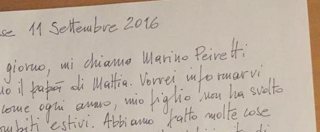 se 11 Settembre 2016
giorno, mi chiamo Marino Peiretti
o il papà di Mattia. Vorrei informarvi
come ogni anno, mio figlio non ha svolto
mpiti estivi. Abbiamo fatto molte cose